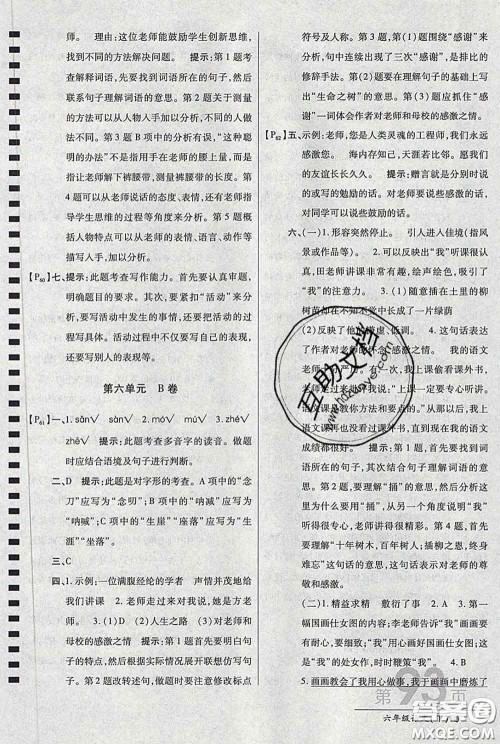 师。 理由：这位老师能鼓励学生创新思维，
找到不同的方法解决问题。 提示：第1题考
查解释词语，首先要找到词语所在的句子，然后
联系句子理解词语的意思。第2题关于测量
的方法可以结合人物对话加以分析，不同的人
做法不同。第3题B项中的分析有误，“这种聪
明的办法”不是指用手在老师的腰上量，而是
指让老师解下裤腰带，量裤腰带的长度。第
4题可以从老师说话的态度、表情，还有老师指
导学生思维的过程等角度来分析。第5题概
括人物特点可以从老师的表情、语言、动作等
描写入手，加以分析。
[P60]七、提示：此题考查写作能力。首先要认真审题，
明确题目的要求。要抓住“活动”来写，
要写活动中发生的事情，还要把事情的过程写
具体。写活动过程中不仅要写自己的表现，
还要写别人的表现。
第六单元 B卷
[P61]一、1. sàn√ 2. mó√ 3. mú√ 4. zhé√
zhē√ 提示：此题考查多音字的读音。做题
时应结合语境及句子进行判断。
二、D 提示：此题是对字形的考查。A项中的“念
刀”应写为“念叨”。B项中的“呐减”应写为
“呐喊”。C项中的“生崖”“座落”应写为“生
涯”“坐落”。
三、C
四、1. 示例：一位满腹经纶的学者 声情并茂地给
我们讲课 2. 老师走过来对我说，她是方老
师。 3. (1)作文 (2)人生之路 (3)对老师和
母校的感激之情 提示：第1题要根据例句
句子的特点，然后根据特点展开联想仿写句
子。第2题改转述句，做题时要注意修改标点
符号及人称。第3题，第(1)题围绕“感谢”来
分析，句中连续出现了三次“感谢”，是排比的
修辞手法。第(2)题要在理解句子的基础上写
出“生命之树”的意思。第(3)题应抓住“感谢”
一词体会作者对老师和母校的感激之情。
[P62]五、示例：老师，您是人类灵魂的工程师，我们永远
感激您。 海内存知己，天涯若比邻。愿我们
的友谊长长久久。 提示：赠言是分别时说
的或写的勉励的话。对老师要说些感激的话，
对同学可以说些鼓励的话。
六、(一)1. 形容突然停止。 引人进入佳境(指风
景或作品等)。 2. 可以反映出“我”听课很认
真，田老师讲课非常有趣，绘声绘色，吸引了
“我”。 3. (1)随意插下在土里的柳
树苗却在不知不觉中长成了一片绿荫
4. 这句话表达
了作者对老师的怀念、感激之情。 我的语文
成绩都很好。 提示：第1题，首先要找到
词语所在的句子，结合句子理解词语的意思。
第2题可以从“捅”的意思来理解，还要分析出
为什么要用“捅”。第3题，可以从田老师的谦
虚、低调及老师讲课精彩分析。第4题，首先
要理解“十年树木，百年树人；插柳之恩，终身
难忘”的意思，这句话表示作者对田老师的尊
敬和感激。
(二)1. 精益求精 敷衍了事 2. A 3. 第一
幅国画仕女图的内容：李老师告诉“我”画画要
有坚实的基本功。第二幅国画仕女图：这是
“我”的处女作，时时鞭策“我”。 4. B
5. 我用心画画，我在画画中磨炼了
第93页